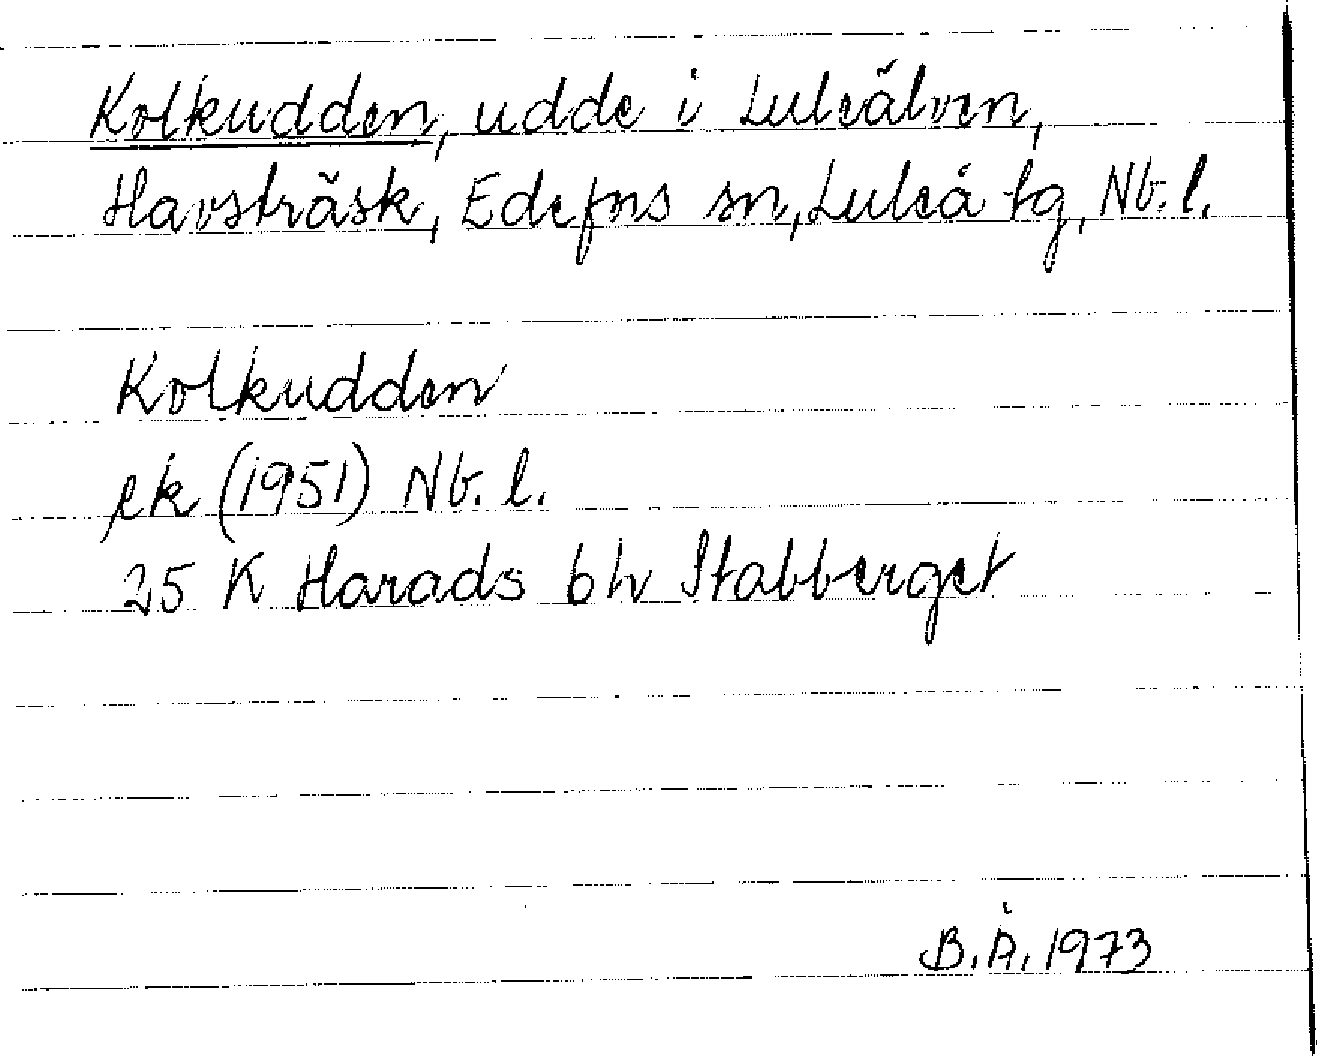 Kolkudden, udde i Luleälven,
Havsträsk, Edefors sn, Luleå tg, Nb. l.
Kolkudden
ek (1951) Nb. l.
25 K Harads b h Stabberget
B. Å. 1973